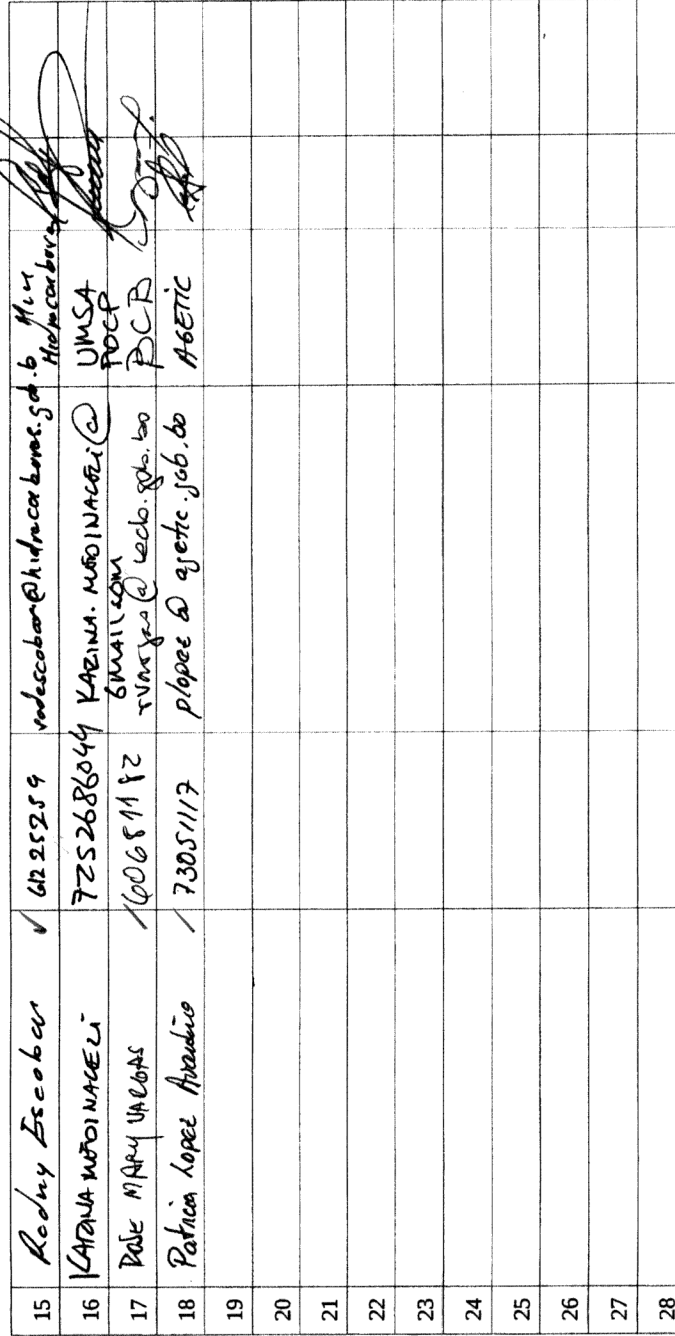 15 Rodny Escobar ✓ 61225259 rodescobar@hidrocarburos.gob.b Min Hidrocarburos
16 KARINA MEDINACELI 72526860 KARINA.MEDINACELI@ GMAIL.COM UMSA POCP
17 ROSE MARY VARGAS / 60681182 rvargas@ .gob.bo BCB
18 Patricia Lopez / 73051117 plopez@agetic.gob.bo AGETIC
19
20
21
22
23
24
25
26
27
28